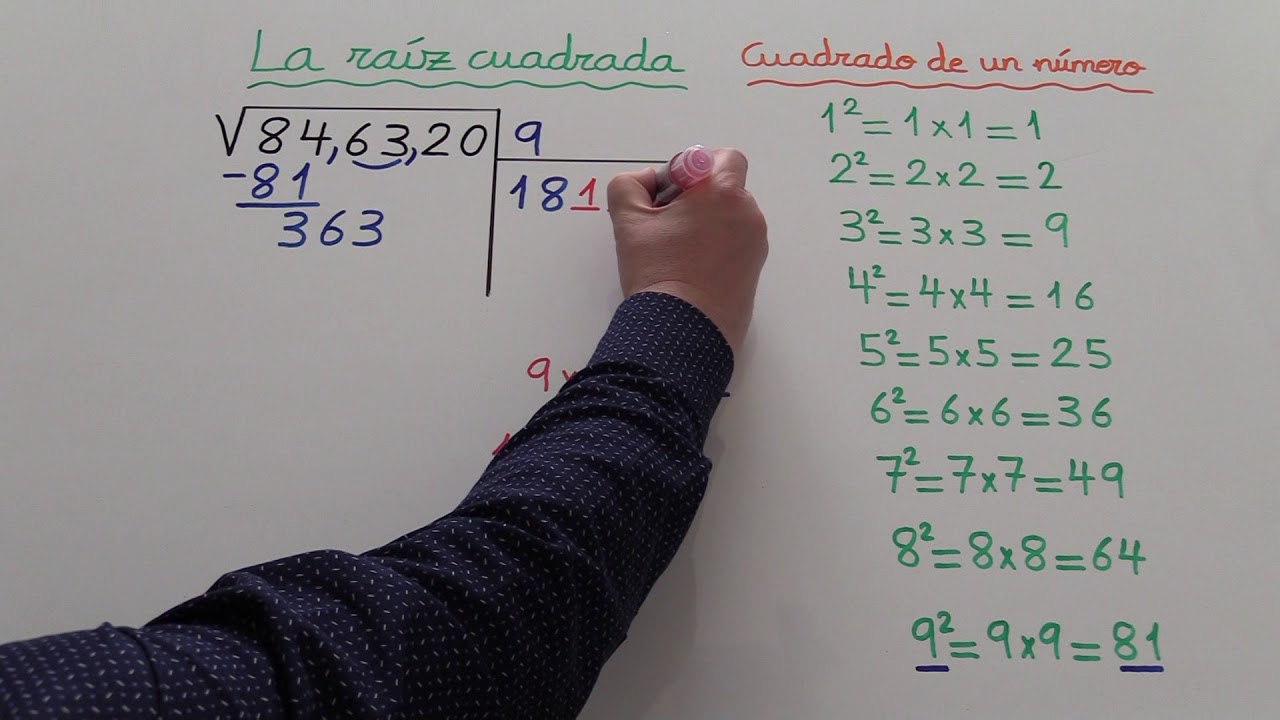 La raíz cuadrada
√84,63,20 9
-81 181
363
9×
Cuadrado de un número
1²=1×1=1
2²=2×2=2
3²=3×3=9
4²=4×4=16
5²=5×5=25
6²=6×6=36
7²=7×7=49
8²=8×8=64
9²=9×9=81